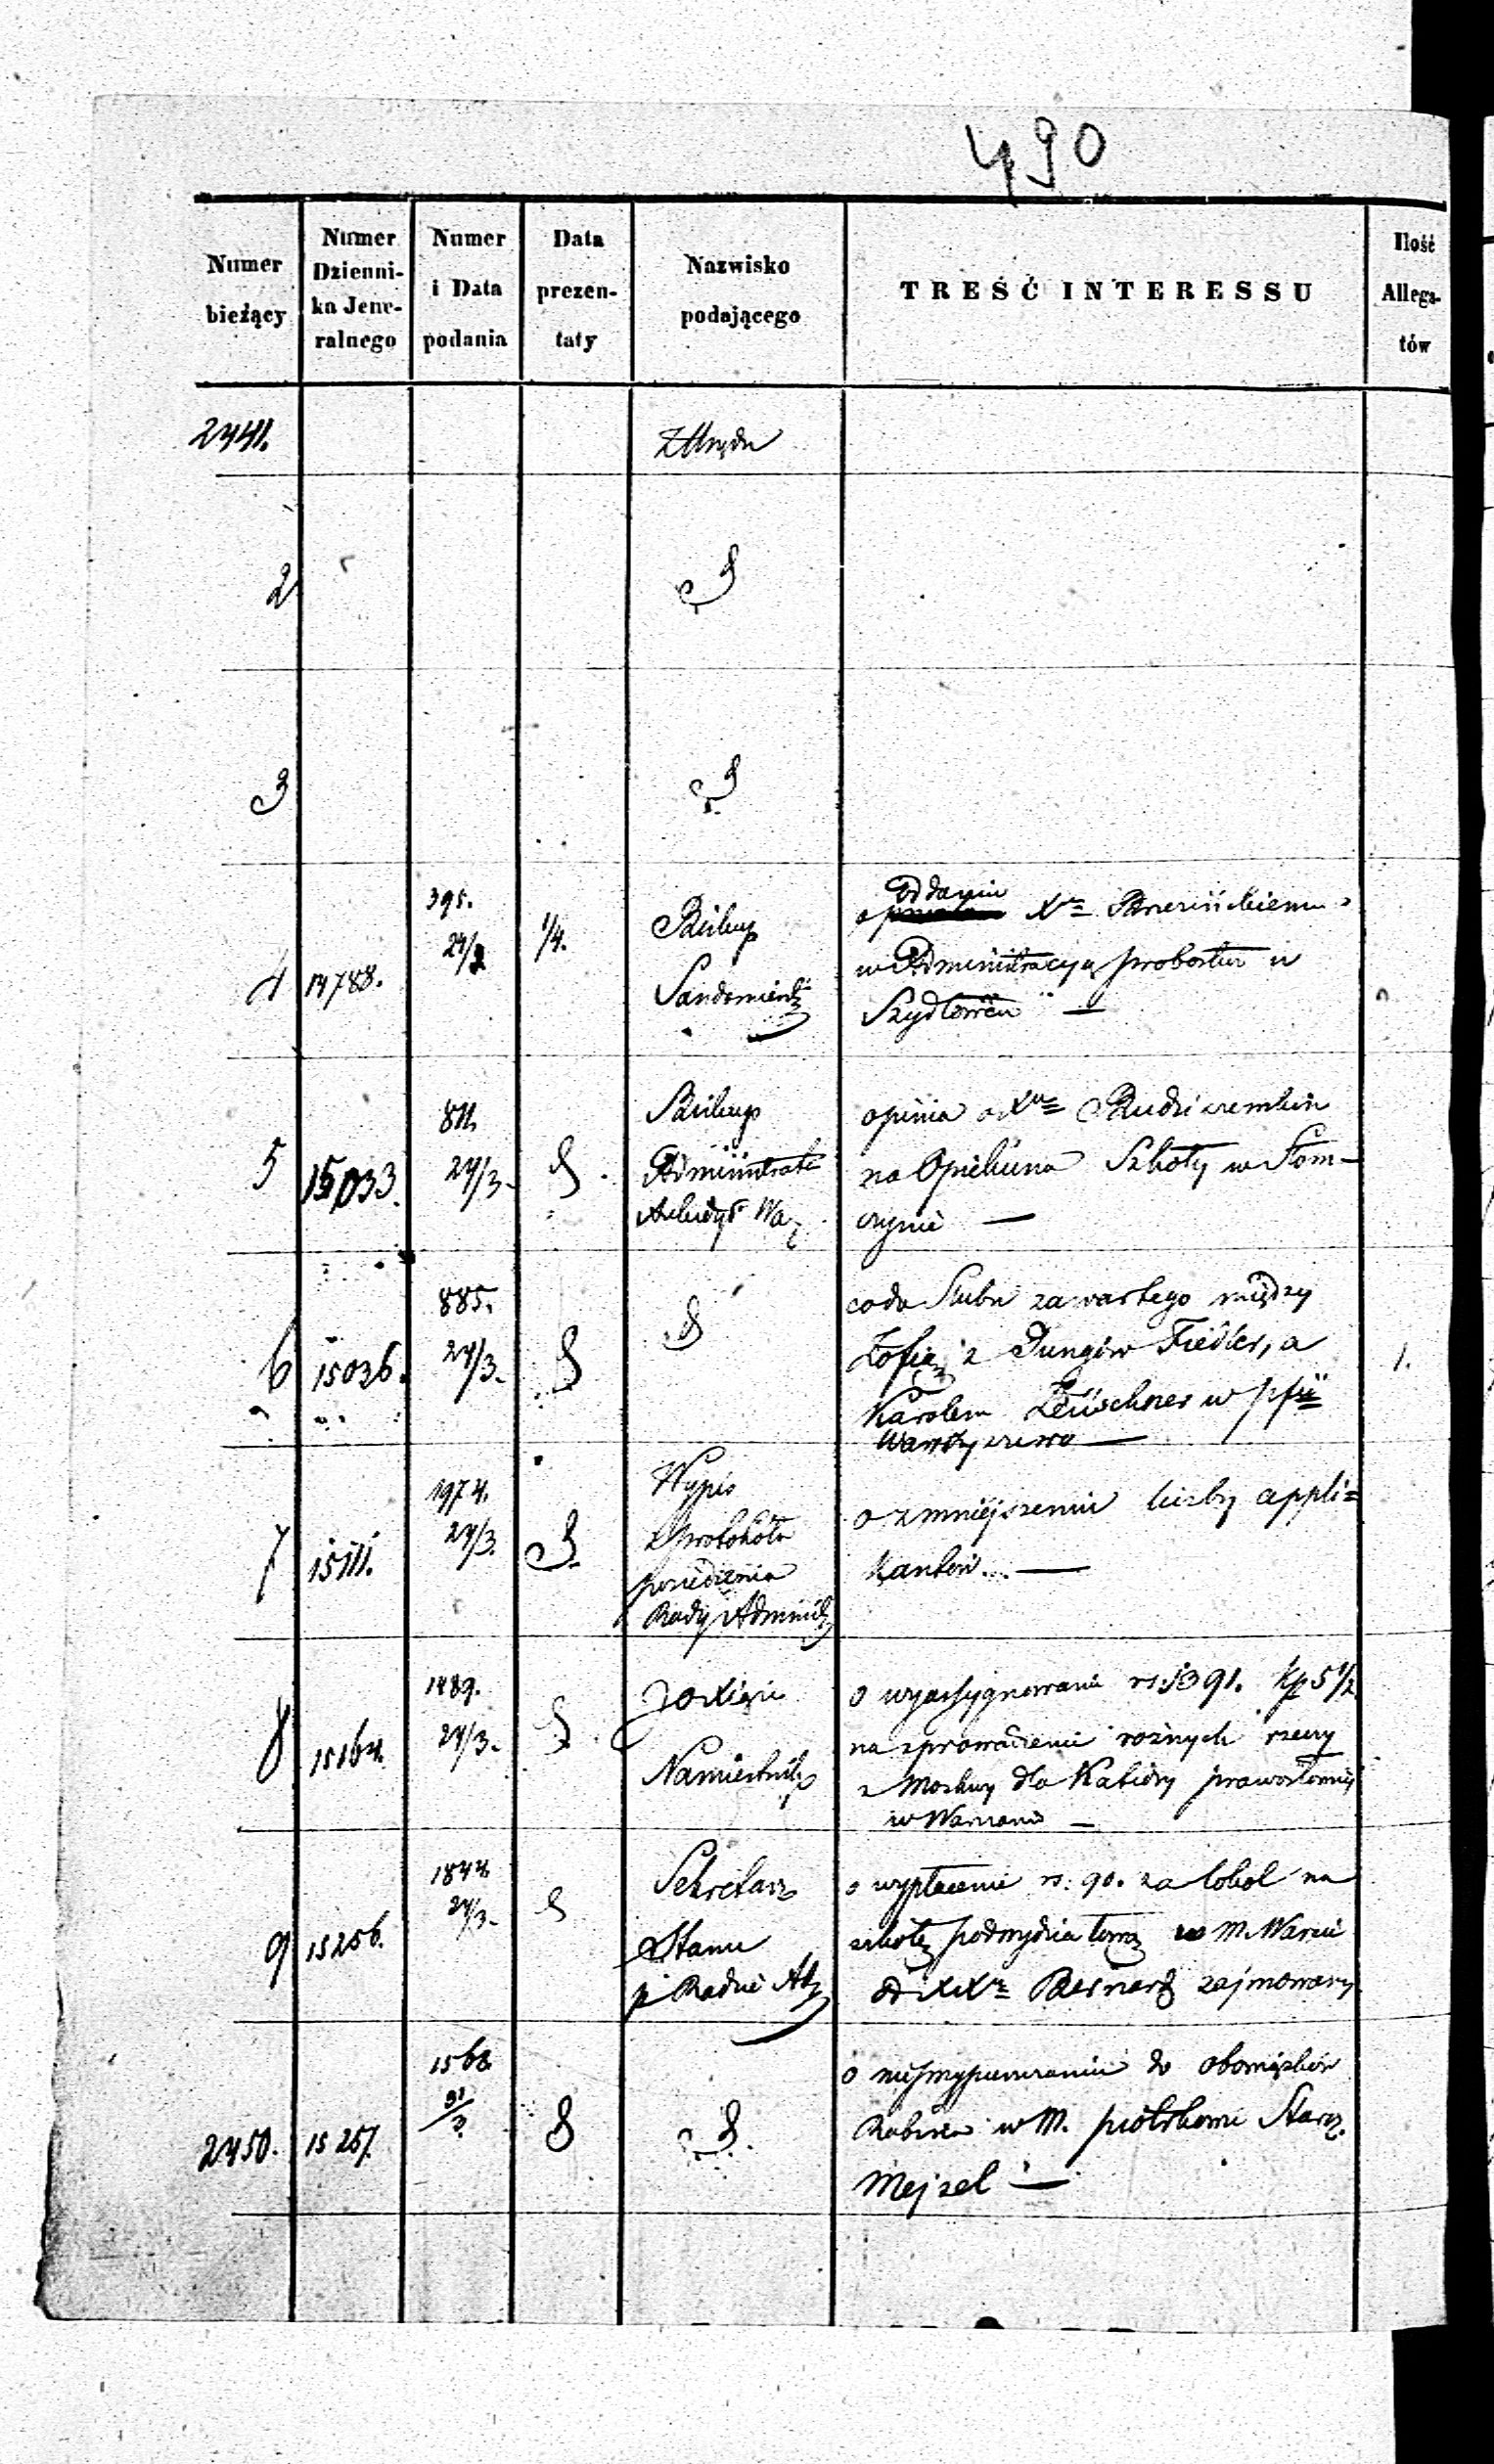 490
Numer bieżący
Numer Dzienni-ka Jene-ralnego
Numer i Data podania
Data prezen-taty
Nazwisko podającego
TREŚĆ INTERESSU
Ilość Allega-tów
2441.
Z Urzędu
2
3
4
14788.
395.
24/2
1/4.
Biskup
Sandomierski
Oddanie
o Xu
w Administracyą probostwa w
Szydłowcu —
5
15033.
811.
24/3.
Biskup
Administrator
Archidyec War
opinia o Xu
na Opiekuna Szkoły w Słom-
czynie —
6
15036.
885.
24/3.
co do Slubu zawartego między
Zofią z Jungów Fiedler, a
Karolem Leüschner w pfii
Wawrzyszewo —
1.
7
15111.
1974.
24/3.
Wypis
z protokółu
posiedzenia
Rady Administr
o zmniejszeniu liczby appli=
kantów... —
8
15164.
1489.
24/3.
JO Xiąże
Namiestnik
o wyassygnowanie rs: 1391. kp 5 1/2
na sprowadzenie rożnych rzeczy
z Moskwy dla Katedry prawosławnej
w Warszawie —
9
15256.
1844.
24/3.
Sekretarz
Stanu
p Radzie Adm
o wypłacenie rs: 90. za lokal na
szkołę podwydziałową w M. Warcie
od XXr Bernard zajmowany
2450.
15257.
1568.
31/3
o
do obowiązków
Rabina w M. piotrkowie Starz.
Mejzel —